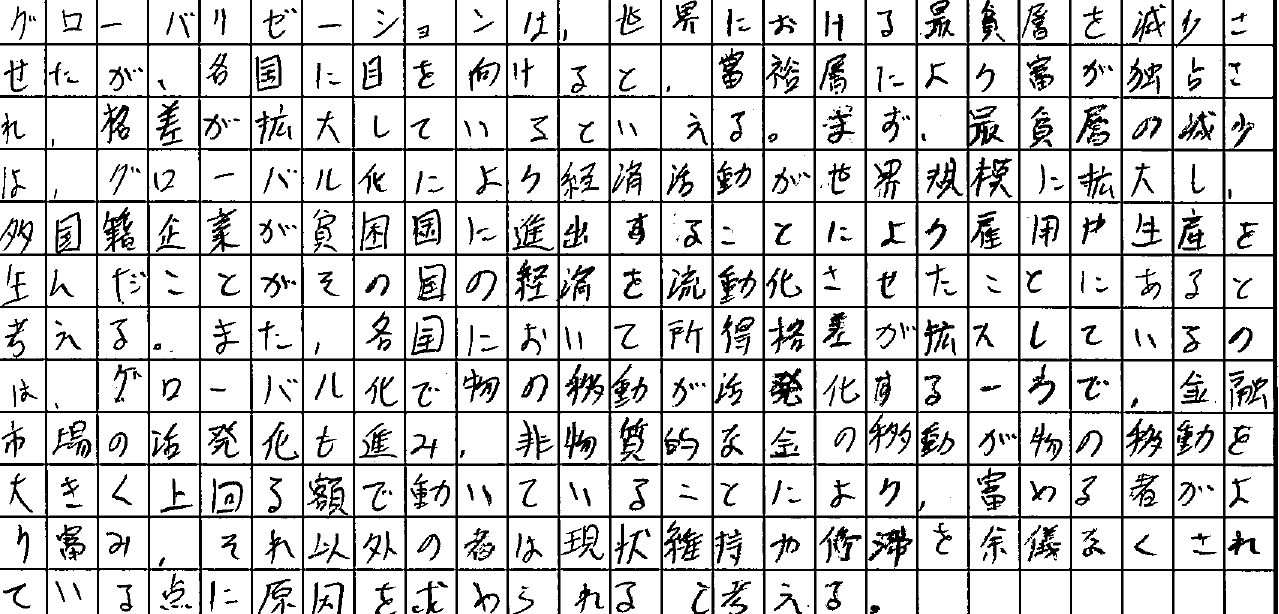 グローバリゼーションは,世界における最貧層を減少さ
せたが、各国に目を向けると,富裕層により富が独占さ
れ,格差が拡大しているといえる。まず,最貧層の減少
は,グローバル化により経済活動が世界規模に拡大し,
多国籍企業が貧困国に進出することにより雇用や生産を
生んだことがその国の経済を流動化させたことにあると
考える。また,各国において所得格差が拡大しているの
は,グローバル化で物の移動が活発化する一方で,金融
市場の活発化も進み,非物質的な金の移動が物の移動を
大きく上回る額で動いていることにより,富める者がよ
り富み,それ以外の者は現状維持か停滞を余儀なくされ
ている点に原因を求められると考える。